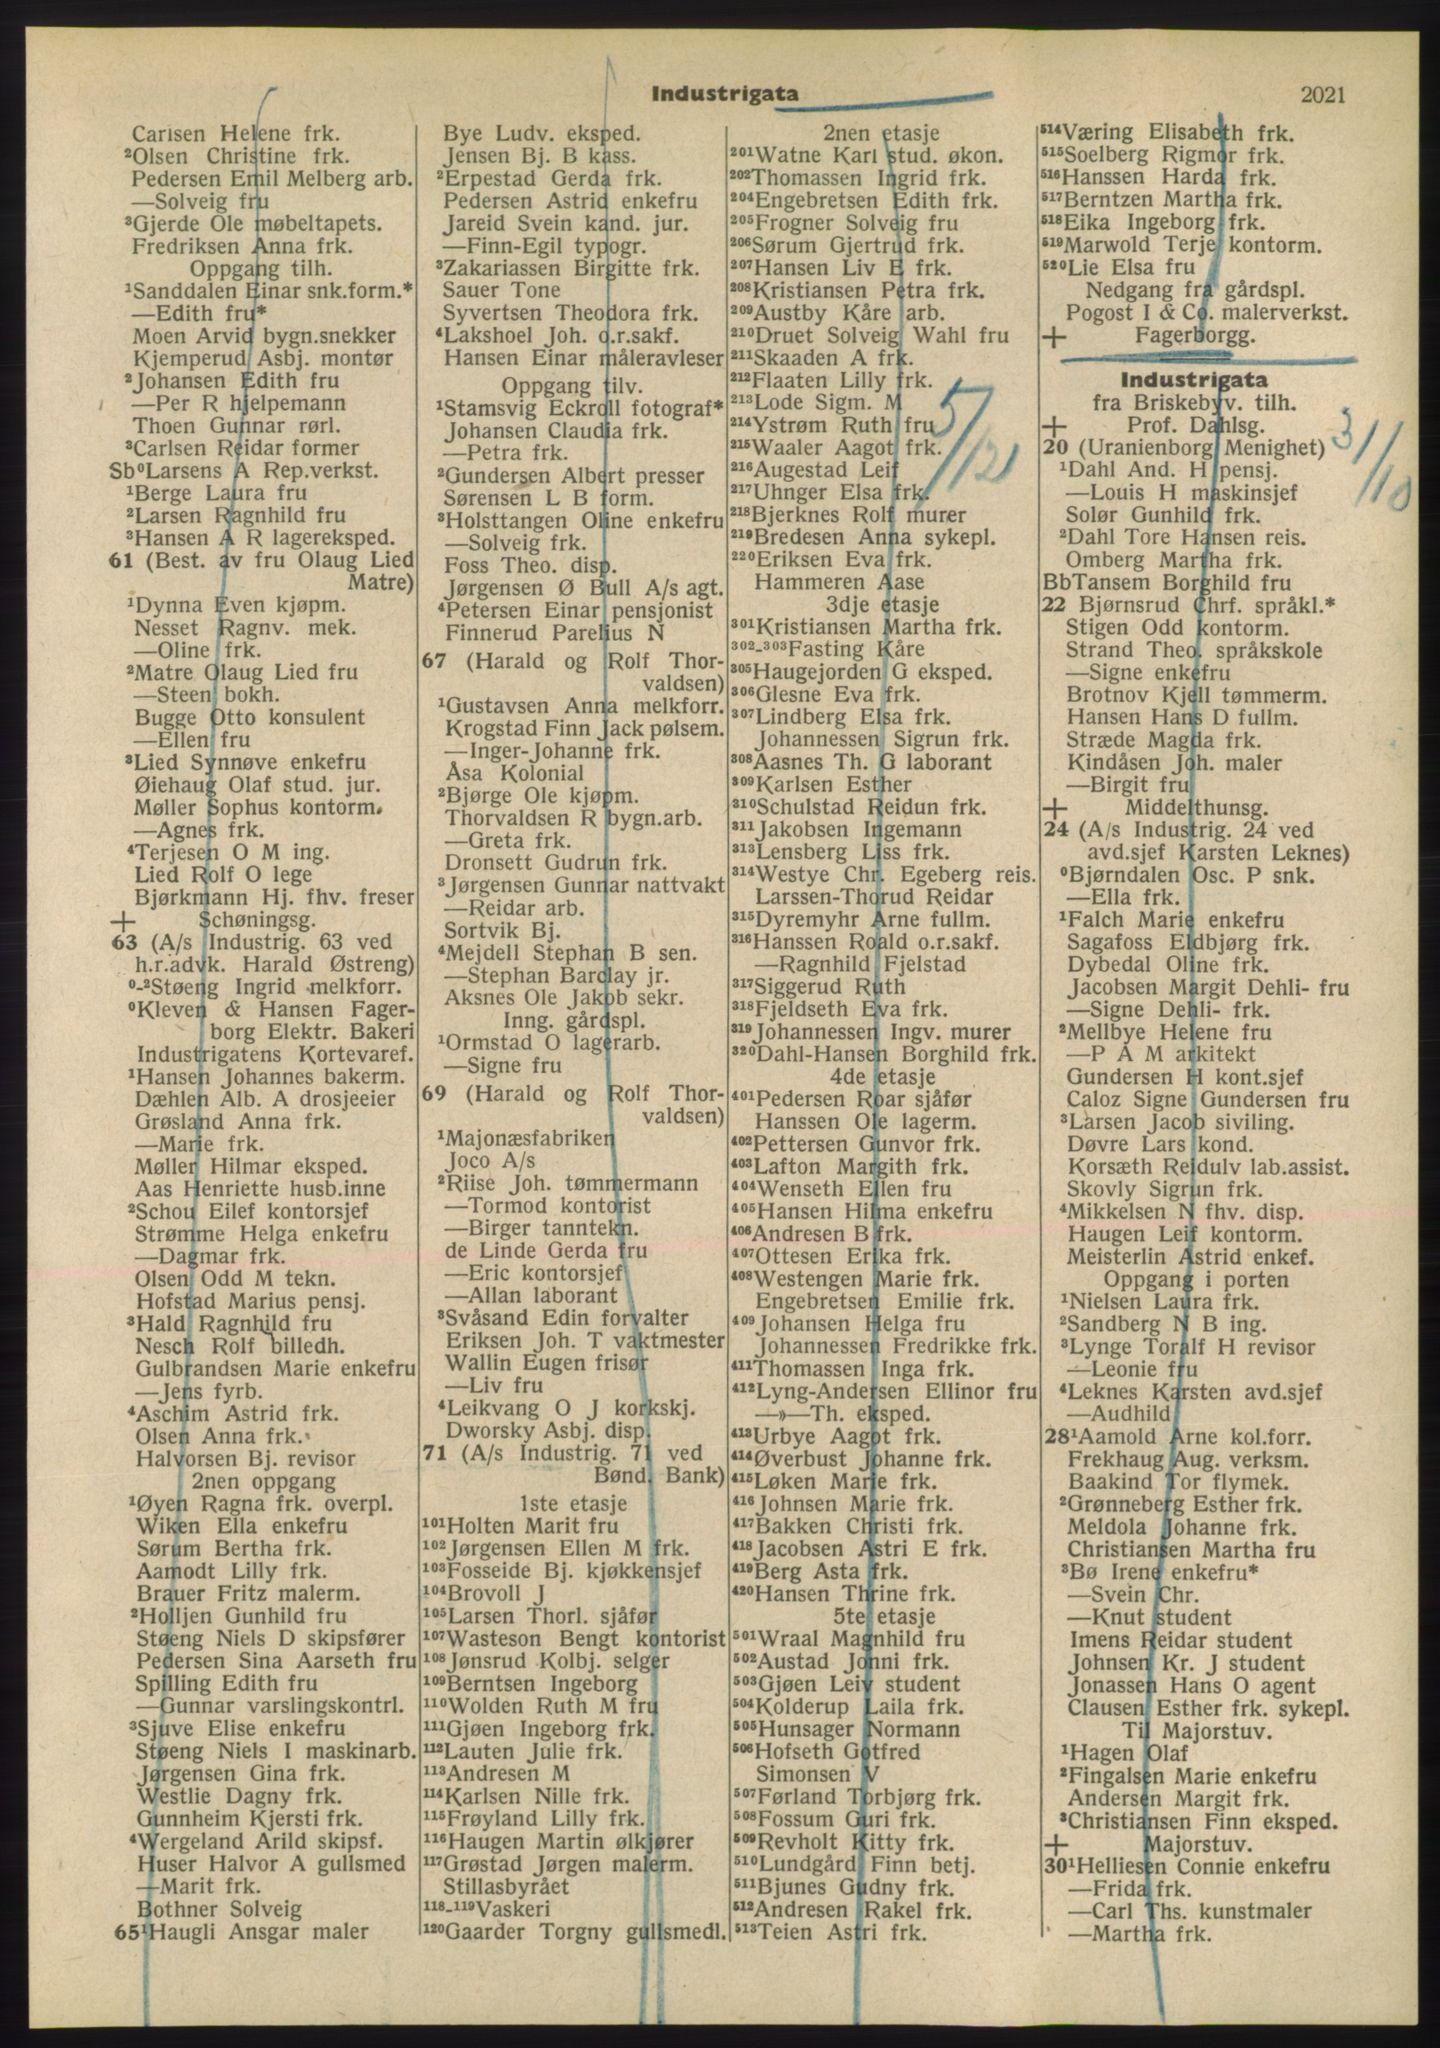 Industrigata
2021
Carlsen Helene frk.
²Olsen Christine frk.
Pedersen Emil Melberg arb.
—Solveig fru
³Gjerde Ole møbeltapets.
Fredriksen Anna frk.
Oppgang tilh.
¹Sanddalen Einar snk.form.*
—Edith fru*
Moen Arvid bygn.snekker
Kjemperud Asbj. montør
²Johansen Edith fru
—Per R hjelpemann
Thoen Gunnar rørl.
³Carlsen Reidar former
Sb⁰Larsens A Rep.verkst.
¹Berge Laura fru
²Larsen Ragnhild fru
³Hansen A R lagereksped.
61 (Best. av fru Olaug Lied
Matre)
¹Dynna Even kjøpm.
Nesset Ragnv. mek.
—Oline frk.
²Matre Olaug Lied fru
—Steen bokh.
Bugge Otto konsulent
—Ellen fru
³Lied Synnøve enkefru
Øiehaug Olaf stud. jur.
Møller Sophus kontorm.
—Agnes frk.
⁴Terjesen O M ing.
Lied Rolf O lege
Bjørkmann Hj. fhv. freser
+ Schøningsg.
63 (A/s Industrig. 63 ved
h.r.advk. Harald Østreng)
⁰-²Støeng Ingrid melkforr.
⁰Kleven & Hansen Fager-
borg Elektr. Bakeri
Industrigatens Kortevaref.
¹Hansen Johannes bakerm.
Dæhlen Alb. A drosjeeier
Grøsland Anna frk.
—Marie frk.
Møller Hilmar eksped.
Aas Henriette husb.inne
²Schou Eilef kontorsjef
Strømme Helga enkefru
—Dagmar frk.
Olsen Odd M tekn.
Hofstad Marius pensj.
³Hald Ragnhild fru
Nesch Rolf billedh.
Gulbrandsen Marie enkefru
—Jens fyrb.
⁴Aschim Astrid frk.
Olsen Anna frk.
Halvorsen Bj. revisor
2nen oppgang
¹Øyen Ragna frk. overpl.
Wiken Ella enkefru
Sørum Bertha frk.
Aamodt Lilly frk.
Brauer Fritz malerm.
²Holljen Gunhild fru
Støeng Niels D skipsfører
Pedersen Sina Aarseth fru
Spilling Edith fru
—Gunnar varslingskontrl.
³Sjuve Elise enkefru
Støeng Niels I maskinarb.
Jørgensen Gina frk.
Westlie Dagny frk.
Gunnheim Kjersti frk.
⁴Wergeland Arild skipsf.
Huser Halvor A gullsmed
—Marit frk.
Bothner Solveig
65¹Haugli Ansgar maler
Bye Ludv. eksped.
Jensen Bj. B kass.
²Erpestad Gerda frk.
Pedersen Astrid enkefru
Jareid Svein kand. jur.
—Finn-Egil typogr.
³Zakariassen Birgitte frk.
Sauer Tone
Syvertsen Theodora frk.
⁴Lakshoel Joh. o.r.sakf.
Hansen Einar måleravleser
Oppgang tilv.
¹Stamsvig Eckroll fotograf*
Johansen Claudia frk.
—Petra frk.
²Gundersen Albert presser
Sørensen L B form.
³Holsttangen Oline enkefru
—Solveig frk.
Foss Theo. disp.
Jørgensen Ø Bull A/s agt.
⁴Petersen Einar pensjonist
Finnerud Parelius N
67 (Harald og Rolf Thor-
valdsen)
¹Gustavsen Anna melkforr.
Krogstad Finn Jack pølsem.
—Inger-Johanne frk.
Åsa Kolonial
²Bjørge Ole kjøpm.
Thorvaldsen R bygn.arb.
—Greta frk.
Dronsett Gudrun frk.
³Jørgensen Gunnar nattvakt
—Reidar arb.
Sortvik Bj.
⁴Mejdell Stephan B sen.
—Stephan Barclay jr.
Aksnes Ole Jakob sekr.
Inng. gårdspl.
¹Ormstad O lagerarb.
—Signe fru
69 (Harald og Rolf Thor-
valdsen)
¹Majonæsfabriken
Joco A/s
²Riise Joh. tømmermann
—Tormod kontorist
—Birger tanntekn.
de Linde Gerda fru
—Eric kontorsjef
—Allan laborant
³Svåsand Edin forvalter
Eriksen Joh. T vaktmester
Wallin Eugen frisør
—Liv fru
⁴Leikvang O J korkskj.
Dworsky Asbj. disp.
71 (A/s Industrig. 71 ved
Bønd. Bank)
1ste etasje
¹⁰¹Holten Marit fru
¹⁰²Jørgensen Ellen M frk.
¹⁰³Fosseide Bj. kjøkkensjef
¹⁰⁴Brovoll J
¹⁰⁵Larsen Thorl. sjåfør
¹⁰⁷Wasteson Bengt kontorist
¹⁰⁸Jønsrud Kolbj. selger
¹⁰⁹Berntsen Ingeborg
¹¹⁰Wolden Ruth M fru
¹¹¹Gjøen Ingeborg frk.
¹¹²Lauten Julie frk.
¹¹³Andresen M
¹¹⁴Karlsen Nille frk.
¹¹⁵Frøyland Lilly frk.
¹¹⁶Haugen Martin ølkjører
¹¹⁷Grøstad Jørgen malerm.
Stillasbyrået
¹¹⁸-¹¹⁹Vaskeri
¹²⁰Gaarder Torgny gullsmedl.
2nen etasje
²⁰¹Watne Karl stud. økon.
²⁰²Thomassen Ingrid frk.
²⁰⁴Engebretsen Edith frk.
²⁰⁵Frogner Solveig fru
²⁰⁶Sørum Gjertrud frk.
²⁰⁷Hansen Liv E frk.
²⁰⁸Kristiansen Petra frk.
²⁰⁹Austby Kåre arb.
²¹⁰Druet Solveig Wahl fru
²¹¹Skaaden A frk.
²¹²Flaaten Lilly frk.
²¹³Lode Sigm. M
²¹⁴Ystrøm Ruth fru
²¹⁵Waaler Aagot frk.
²¹⁶Augestad Leif
²¹⁷Uhnger Elsa frk.
²¹⁸Bjerknes Rolf murer
²¹⁹Bredesen Anna sykepl.
²²⁰Eriksen Eva frk.
Hammeren Aase
3dje etasje
³⁰¹Kristiansen Martha frk.
³⁰²-³⁰³Fasting Kåre
³⁰⁵Haugejorden G eksped.
³⁰⁶Glesne Eva frk.
³⁰⁷Lindberg Elsa frk.
Johannessen Sigrun frk.
³⁰⁸Aasnes Th. G laborant
³⁰⁹Karlsen Esther
³¹⁰Schulstad Reidun frk.
³¹¹Jakobsen Ingemann
³¹³Lensberg Liss frk.
³¹⁴Westye Chr. Egeberg reis.
Larssen-Thorud Reidar
³¹⁵Dyremyhr Arne fullm.
³¹⁶Hanssen Roald o.r.sakf.
—Ragnhild Fjelstad
³¹⁷Siggerud Ruth
³¹⁸Fjeldseth Eva frk.
³¹⁹Johannessen Ingv. murer
³²⁰Dahl-Hansen Borghild frk.
4de etasje
⁴⁰¹Pedersen Roar sjåfør
Hanssen Ole lagerm.
⁴⁰²Pettersen Gunvor frk.
⁴⁰³Lafton Margith frk.
⁴⁰⁴Wenseth Ellen fru
⁴⁰⁵Hansen Hilma enkefru
⁴⁰⁶Andresen B frk.
⁴⁰⁷Ottesen Erika frk.
⁴⁰⁸Westengen Marie frk.
Engebretsen Emilie frk.
⁴⁰⁹Johansen Helga fru
Johannessen Fredrikke frk.
⁴¹¹Thomassen Inga frk.
⁴¹²Lyng-Andersen Ellinor fru
—»—Th. eksped.
⁴¹³Urbye Aagot frk.
⁴¹⁴Øverbust Johanne frk.
⁴¹⁵Løken Marie frk.
⁴¹⁶Johnsen Marie frk.
⁴¹⁷Bakken Christi frk.
⁴¹⁸Jacobsen Astri E frk.
⁴¹⁹Berg Asta frk.
⁴²⁰Hansen Thrine frk.
5te etasje
⁵⁰¹Wraal Magnhild fru
⁵⁰²Austad Jonni frk.
⁵⁰³Gjøen Leiv student
⁵⁰⁴Kolderup Laila frk.
⁵⁰⁵Hunsager Normann
⁵⁰⁶Hofseth Gotfred
Simonsen V
⁵⁰⁷Førland Torbjørg frk.
⁵⁰⁸Fossum Guri frk.
⁵⁰⁹Revholt Kitty frk.
⁵¹⁰Lundgård Finn betj.
⁵¹¹Bjunes Gudny frk.
⁵¹²Andresen Rakel frk.
⁵¹³Teien Astri frk.
5/12
⁵¹⁴Væring Elisabeth frk.
⁵¹⁵Soelberg Rigmor frk.
⁵¹⁶Hanssen Harda frk.
⁵¹⁷Berntzen Martha frk.
⁵¹⁸Eika Ingeborg frk.
⁵¹⁹Marwold Terje kontorm.
⁵²⁰Lie Elsa fru
Nedgang fra gårdspl.
Pogost I & Co. malerverkst.
+ Fagerborgg.
Industrigata
fra Briskebyv. tilh.
+ Prof. Dahlsg.
20 (Uranienborg Menighet)
31/10
¹Dahl And. H pensj.
—Louis H maskinsjef
Solør Gunhild frk.
²Dahl Tore Hansen reis.
Omberg Martha frk.
BbTansem Borghild fru
22 Bjørnsrud Chrf. språkl.*
Stigen Odd kontorm.
Strand Theo. språkskole
—Signe enkefru
Brotnov Kjell tømmerm.
Hansen Hans D fullm.
Stræde Magda frk.
Kindåsen Joh. maler
—Birgit fru
+ Middelthunsg.
24 (A/s Industrig. 24 ved
avd.sjef Karsten Leknes)
⁰Bjørndalen Osc. P snk.
—Ella frk.
¹Falch Marie enkefru
Sagafoss Eldbjørg frk.
Dybedal Oline frk.
Jacobsen Margit Dehli- fru
—Signe Dehli- frk.
²Mellbye Helene fru
—P A M arkitekt
Gundersen H kont.sjef
Caloz Signe Gundersen fru
³Larsen Jacob siviling.
Døvre Lars kond.
Korsæth Reidulv lab.assist.
Skovly Sigrun frk.
⁴Mikkelsen N fhv. disp.
Haugen Leif kontorm.
Meisterlin Astrid enkef.
Oppgang i porten
¹Nielsen Laura frk.
²Sandberg N B ing.
³Lynge Toralf H revisor
—Leonie fru
⁴Leknes Karsten avd.sjef
—Audhild
28¹Aamold Arne kol.forr.
Frekhaug Aug. verksm.
Baakind Tor flymek.
²Grønneberg Esther frk.
Meldola Johanne frk.
Christiansen Martha fru
³Bø Irene enkefru*
—Svein Chr.
—Knut student
Imens Reidar student
Johnsen Kr. J student
Jonassen Hans O agent
Clausen Esther frk. sykepl.
Til Majorstuv.
¹Hagen Olaf
²Fingalsen Marie enkefru
Andersen Margit frk.
³Christiansen Finn eksped.
+ Majorstuv.
30¹Helliesen Connie enkefru
—Frida frk.
—Carl Ths. kunstmaler
—Martha frk.